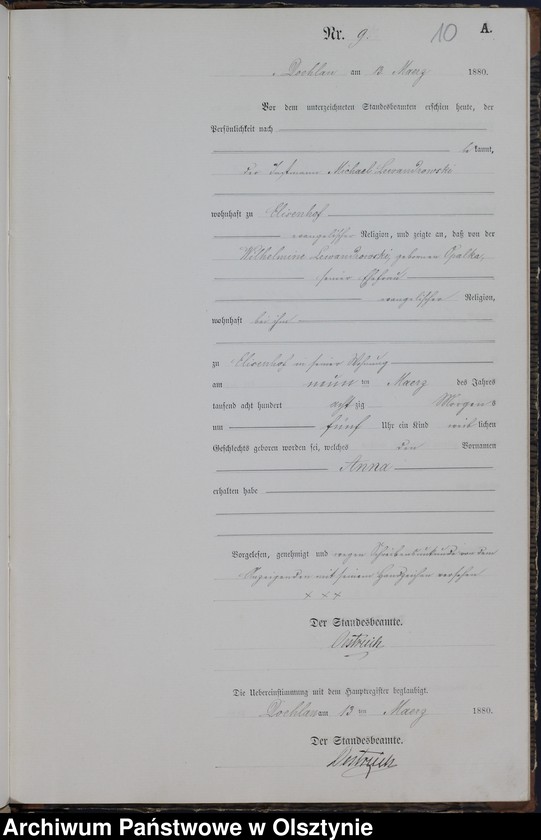 Nr. 9. 10 A.
Dochlau am 13 Maerz 1880.
Vor dem unterzeichneten Standesbeamten erschien heute, der
Persönlichkeit nach
be kannt,
der Instmann Michael Lewandrowski
wohnhaft zu Elisenhof
evangelischer Religion, und zeigte an, daß von der
Wilhelmine Lewandrowski, geborenen Opalka,
seiner Ehefrau
evangelischer Religion,
wohnhaft bei ihm
zu Elisenhof in seiner Wohnung
am neun ten Maerz des Jahres
tausend acht hundert acht zig Morgen s
um fünf Uhr ein Kind weib lichen
Geschlechts geboren worden sei, welches den Vornamen
Anna
erhalten habe
Vorgelesen, genehmigt und wegen Schreibensunkunde von dem
Anzeigenden mit seinem Handzeichen versehen
+ + +
Der Standesbeamte.
Oestreich
Die Uebereinstimmung mit dem Hauptregister beglaubigt.
Dochlau am 13 ten Maerz 1880.
Der Standesbeamte.
Oestreich
Archiwum Państwowe w Olsztynie